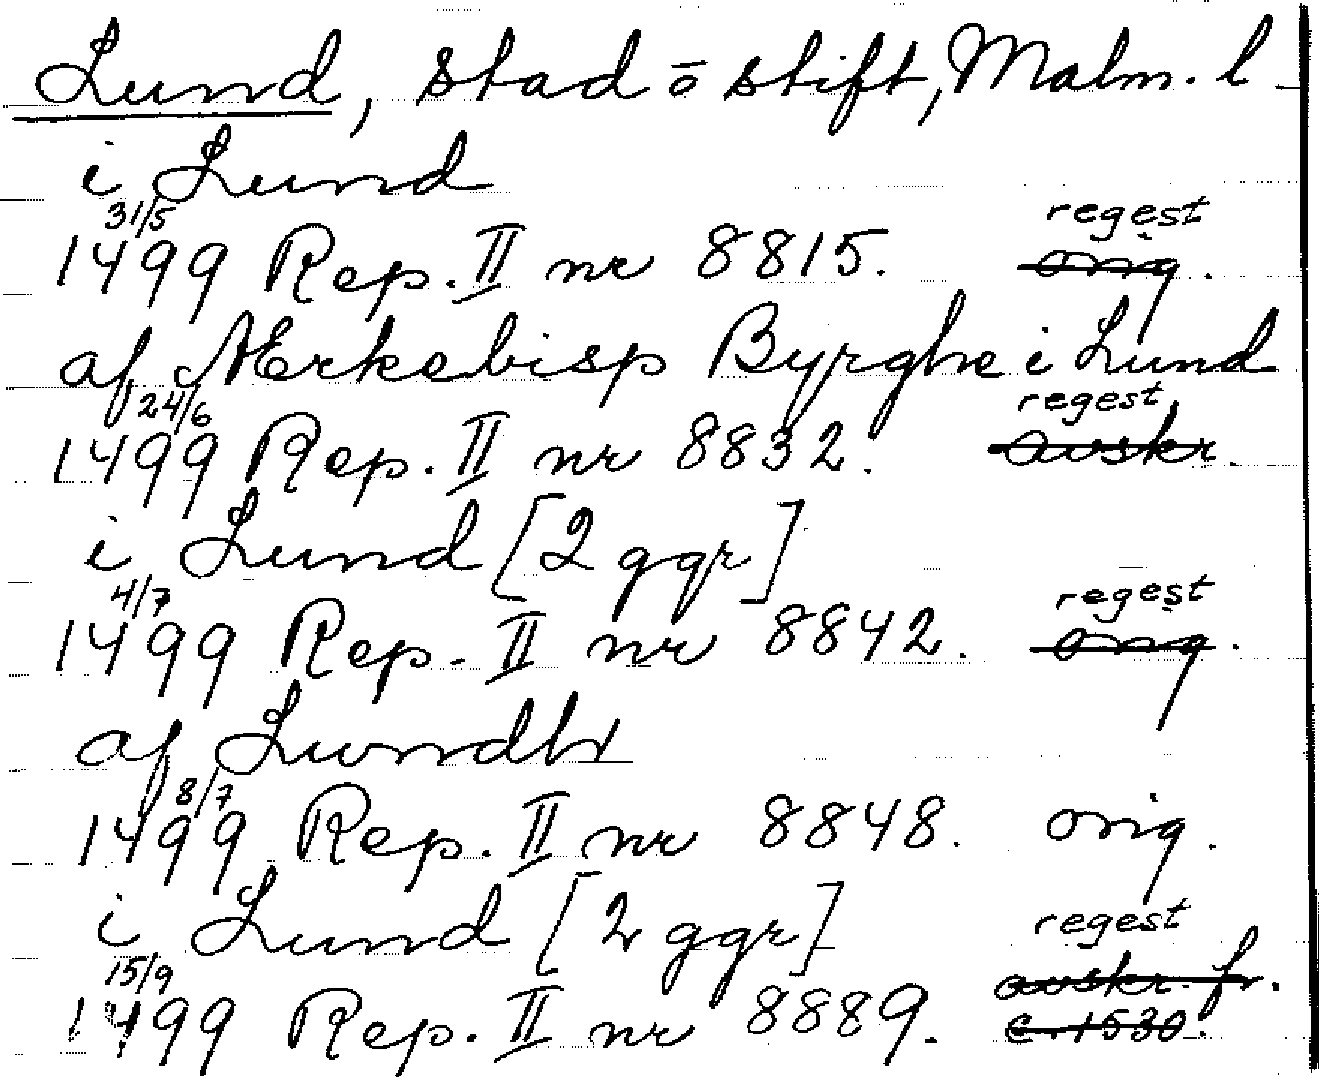 Lund, stad o stift, Malm. l
i Lund
31/5 regest
1499 Rep. II nr 8815. orig.
af Ærkebisp Byrghe i Lund
24/6 regest
1499 Rep. II nr 8832. avskr.
i Lund [2 ggr]
4/7 regest
1499 Rep. II nr 8842. orig.
af Lundh
8/7
1499 Rep. II nr 8848. orig.
i Lund [2 ggr]
15/9 regest
avskr. fr.
1499 Rep. II nr 8889. c. 1530.